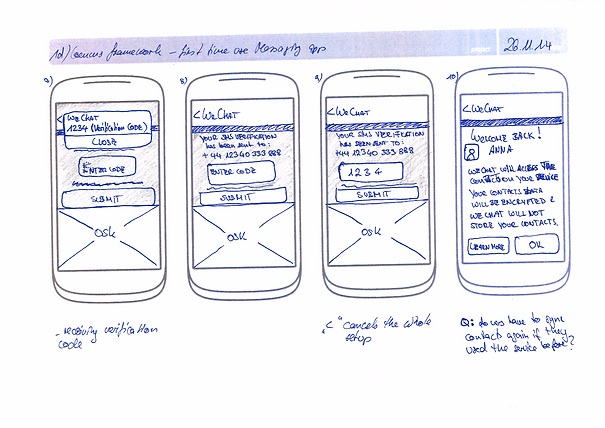 framework - first time use Messaging apps
project
20.11.14
7)
WeChat
1234 (Verification CODE)
CLOSE
ENTER CODE
SUBMIT
OSK
- receiving verification
code
8)
< WeChat
YOUR SMS VERIFICATION
has been sent to:
+44 12340 333 888
ENTER CODE
SUBMIT
OSK
9)
< WeChat
YOUR SMS VERIFICATION
HAS BEEN SENT TO:
+44 12340 333 888
1234
SUBMIT
OSK
„<" cancels the whole
setup
10)
< WeChat
WELCOME BACK!
ANNA
WECHAT WILL ACCESS THE
CONTACTS ON YOUR DEVICE
YOUR CONTACTS DATA
WILL BE ENCRYPTED &
WE CHAT WILL NOT
STORE YOUR CONTACTS.
LEARN MORE
OK
Q: do users have to sync
contacts again if they
used the service before?